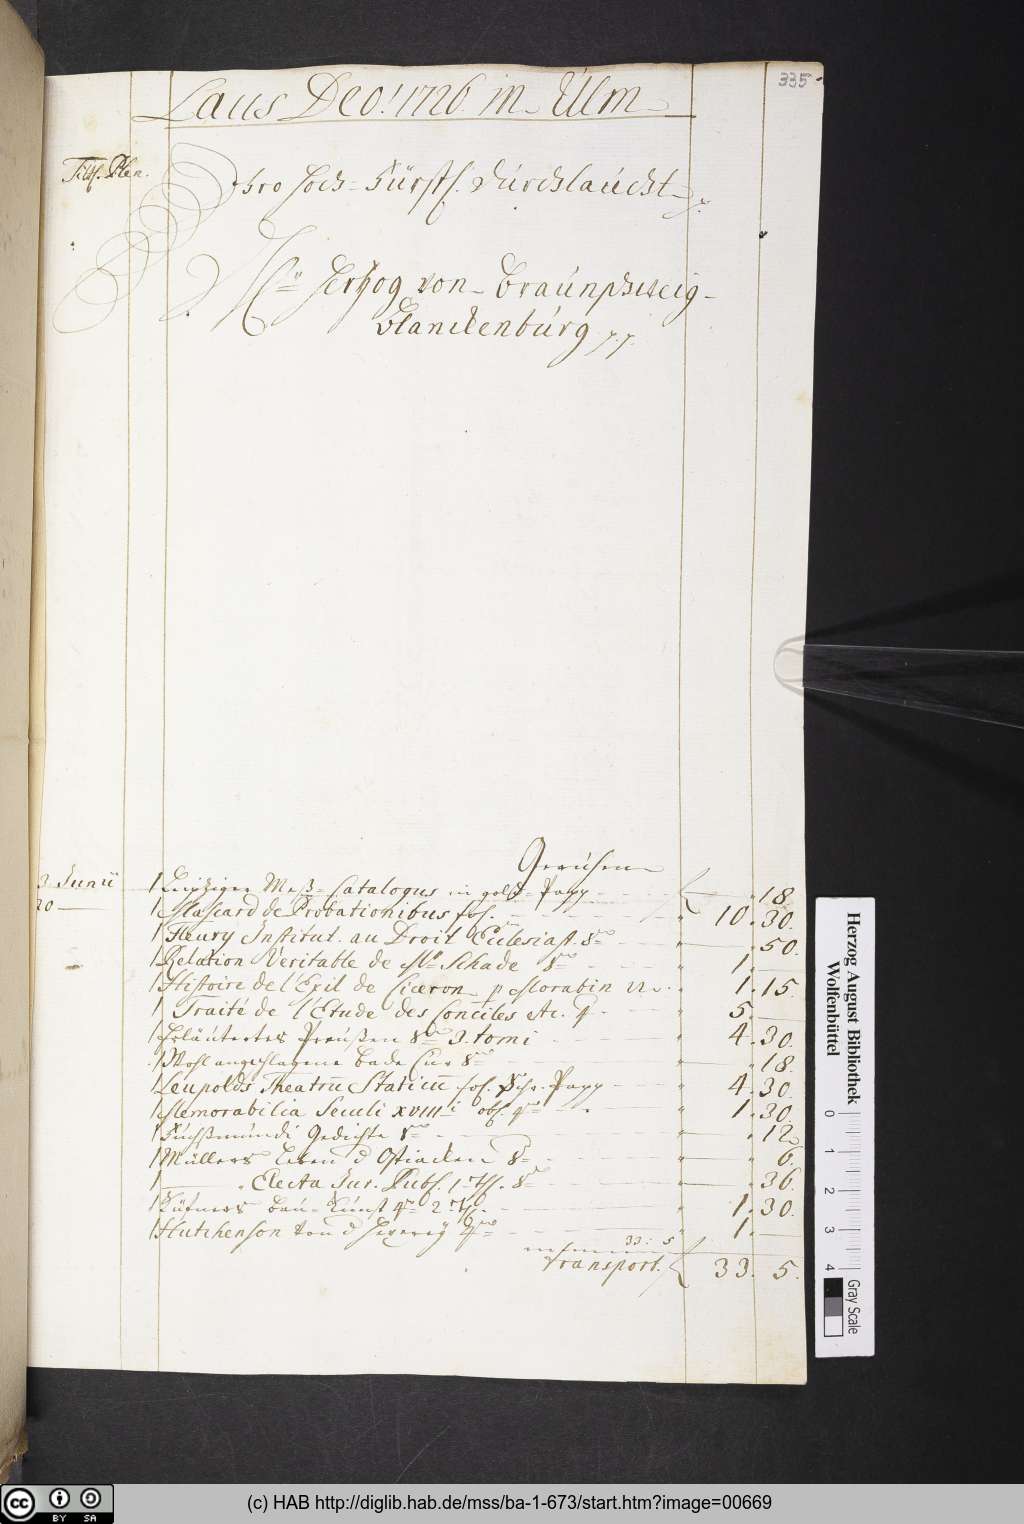 335
Laus Deo! 1726. in Ulm
Titl. Plen.
Ihro Hoch-Fürstl. Durchlaucht
Herzog von Braunschweig-
Blanckenburg
3 Junii 1 Leipziger Meß-Catalogus in gold-Papp „ 18.
20 1 Mascard de Probationibus fol. „ 10. 30.
1 Fleury Institut. au Droit Eclesiast. 8vo „ 50.
1 Relation Veritable de Mr Schade 8vo „ 1.
1 Histoire de l'Exil de Ciceron p Morabin 12. „ 1. 15.
1 Traité de l'Etude des Conciles etc. 4. „ 5.
1 Erläutertes Preüßen 8vo 3. tomi „ 4. 30.
1 Wohl angeschlagene bade Cur 8vo „ 18.
1 Leupolds Theatrū Staticū fol. Schr. Papp „ 4. 30.
1 Memorabilia Seculi XVIIIi 4to „ 1. 30.
1 Gedichte 8vo „ 12
1 Müllers Leben d Ostiacken 8vo „ 6.
1 Electa Jur. Publ. 1. Th. 8vo „ 36.
1 Bau-Kunst 4to 2. Th. „ 1. 30.
1 Hutchenson von d Hexerey 4to „ 1.
33: 5
Transport. 33. 5.
Herzog August Bibliothek
Wolfenbüttel
0 1 2 3 4
Gray Scale
cc BY SA
(c) HAB http://diglib.hab.de/mss/ba-1-673/start.htm?image=00669